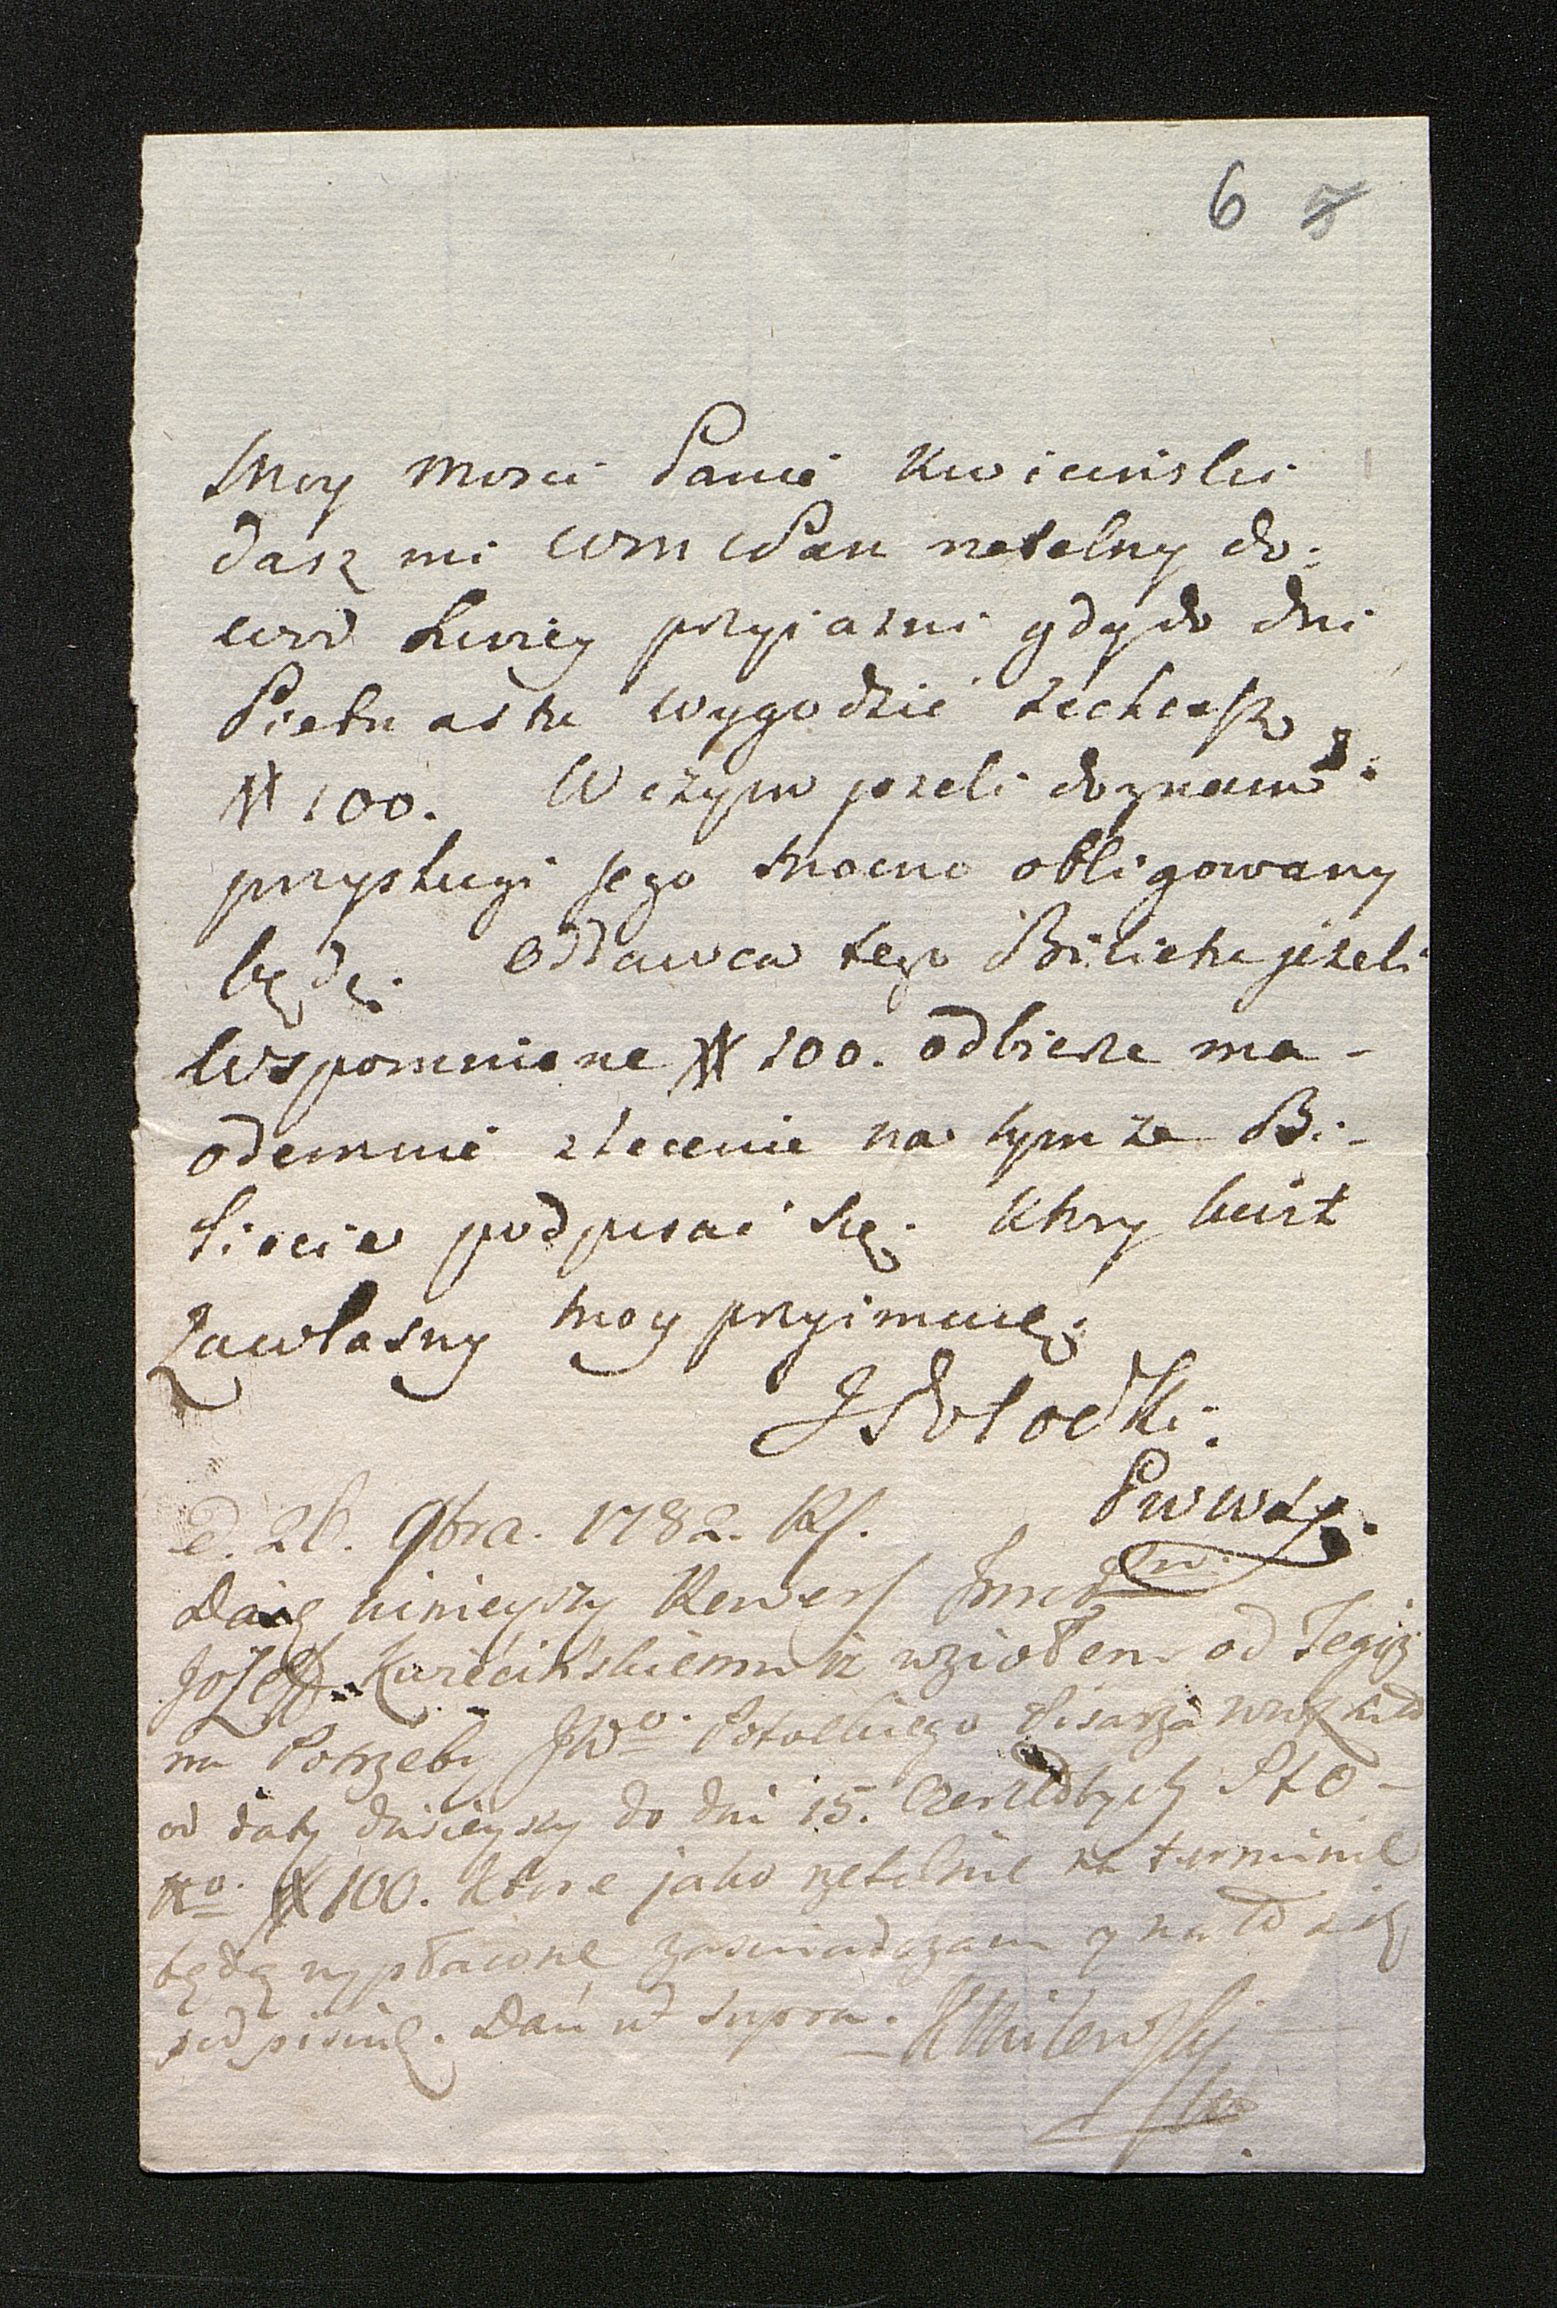 6 5
Moy Mosci Panie Kwicinski
dasz mi WM Pan rzetelny do:
wod swoiey przyiazni gdy do dni
Pietnastu wygodzic zechcesz
# 100. W czym jezeli doznam
przysługi Jego mocno obligowany
będę. Oddawca tego Bilietu jezeli
wspomnione # 100. odbierze ma -
odemnie zlecenie na tymze Bi-
liecie podpisac się. Ktory kwit
za własny moy przyimuię.
J Potocki.
P W W X L
d. 26. 9bra. 1782. 
Daię ninieyszy Rewers Jmci Pn.
Jozeff. Kwiecińskiemu iz wziołem od Tegoz
na Potrzeby JWo. Potockiego Pisarza
od daty dzisieyszy do dni 15. Czer: Złotych Sto -
No. # 100. ktore jako rzetelnie na terminie
będą wypłacone zaswiadczam y na to się
podpisuię. Dan ut supra. - K Milewski